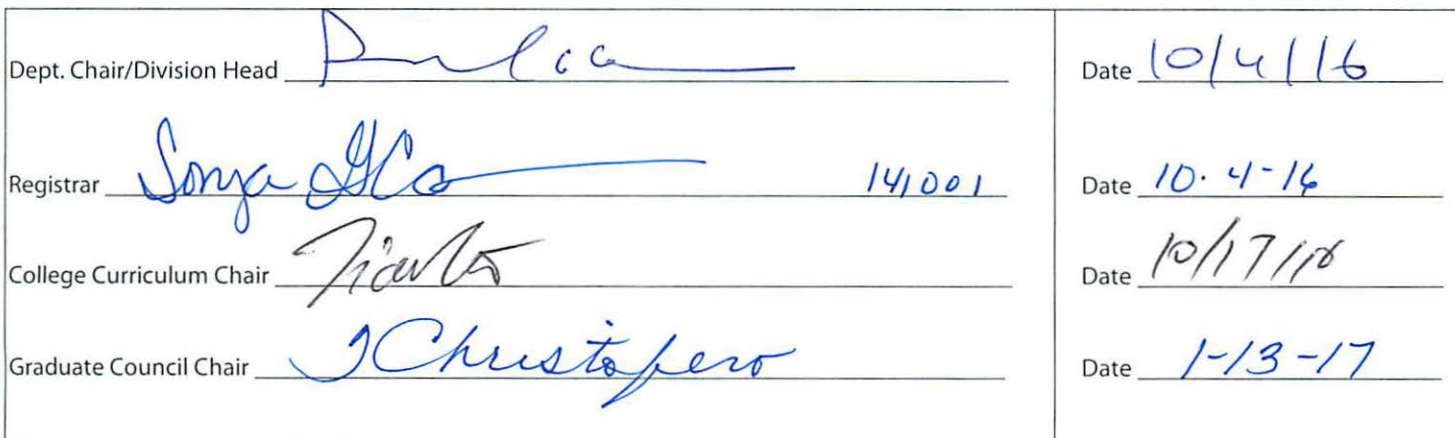 Dept. Chair/Division Head Date 10/4/16
Registrar Sonja 141001 Date 10.4-16
College Curriculum Chair Date 10/17/16
Graduate Council Chair Christofero Date 1-13-17